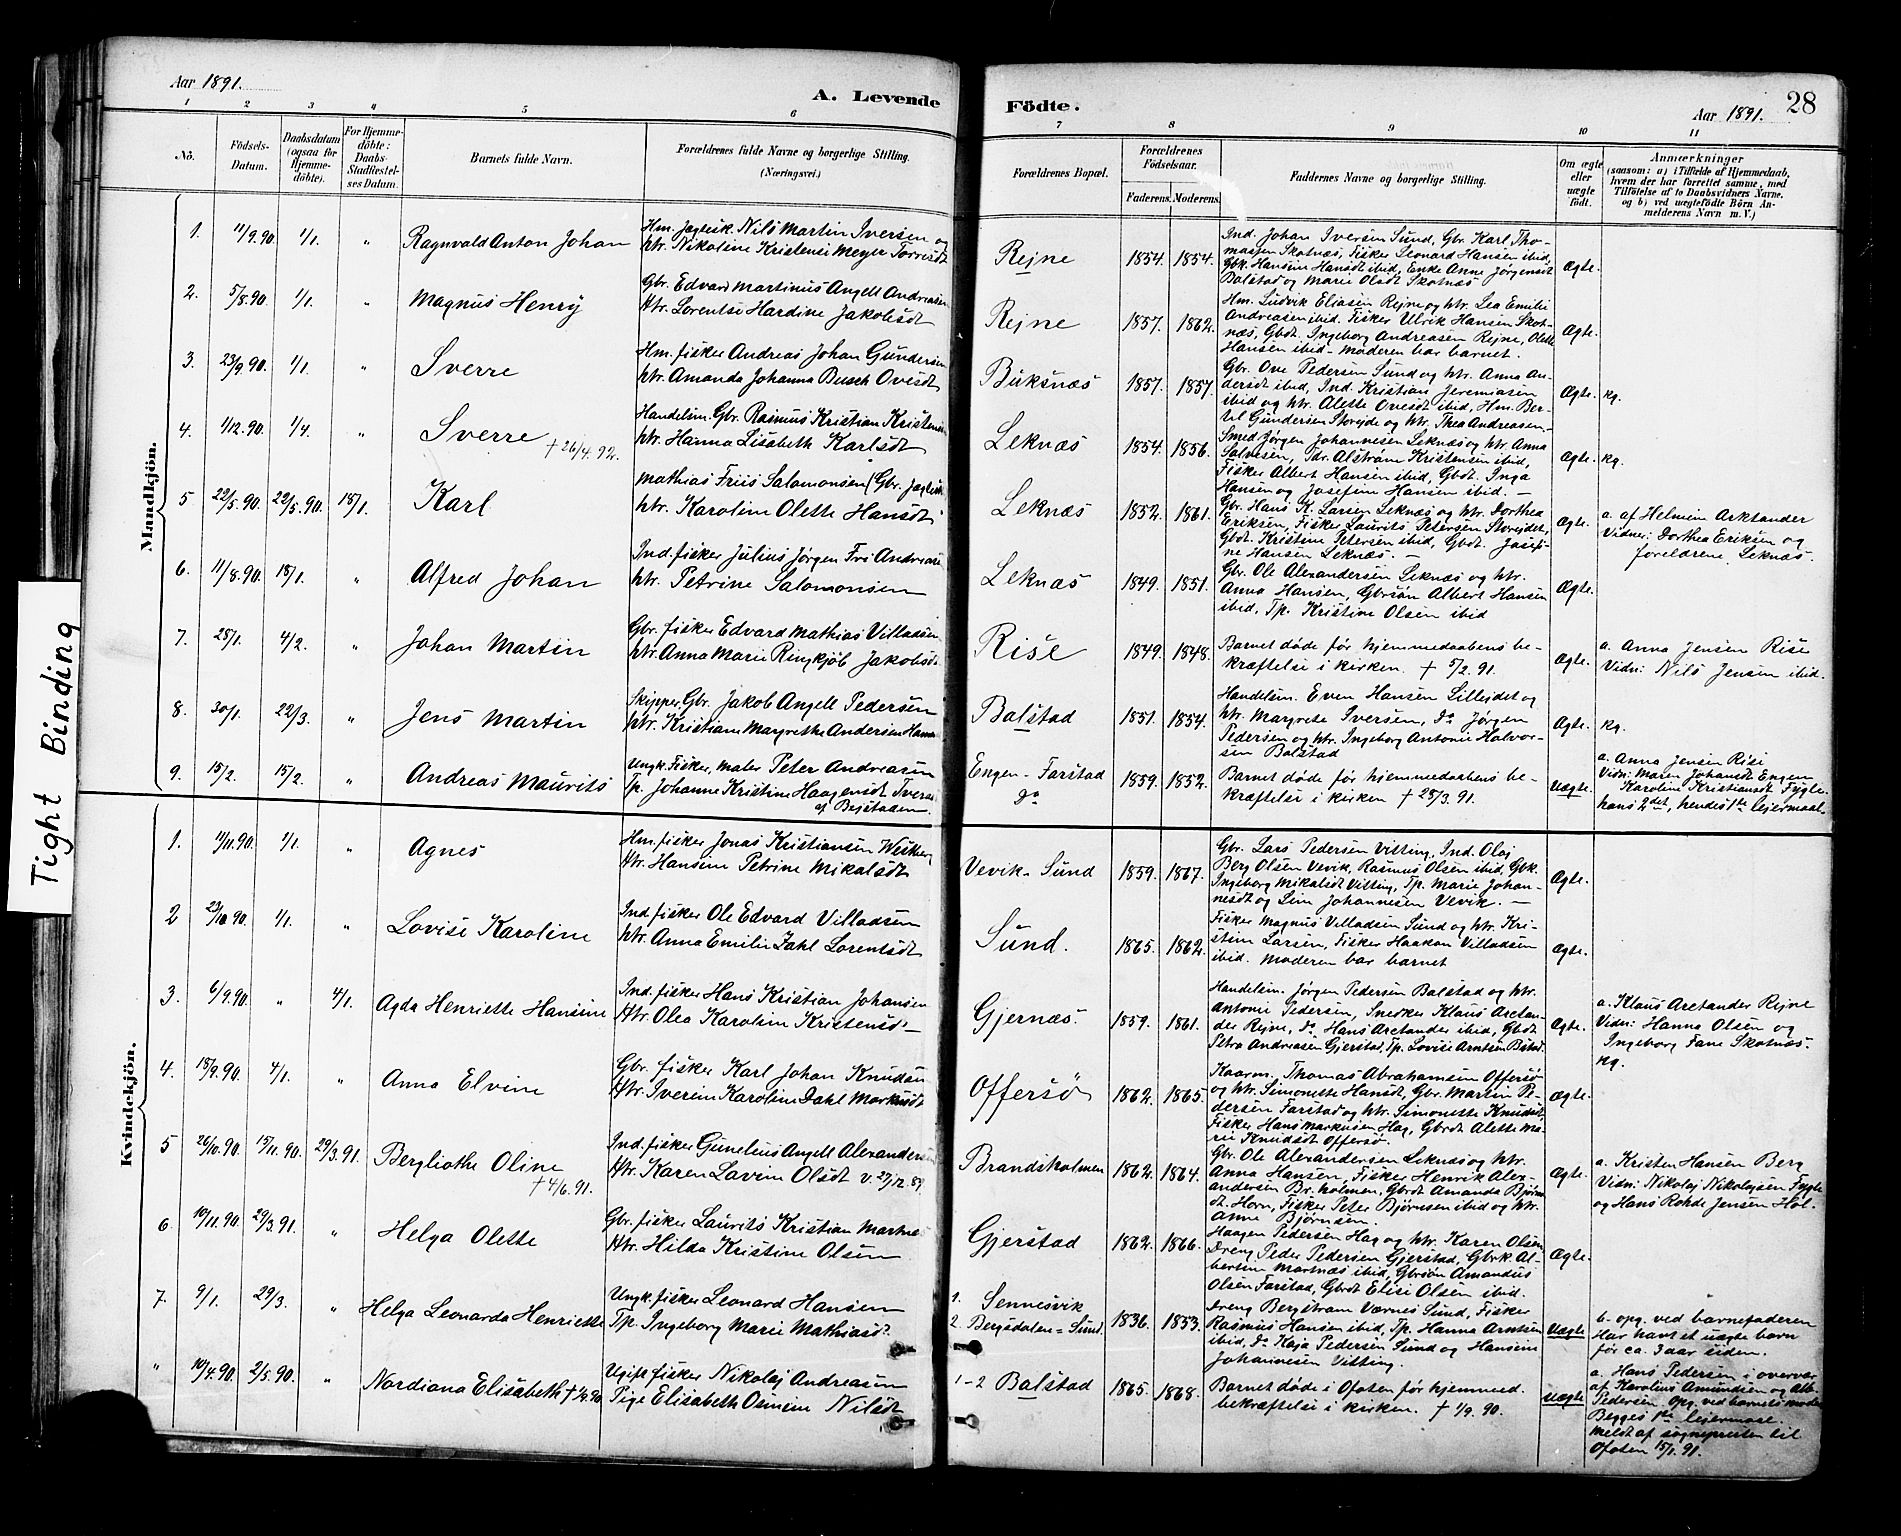 Aar 1891.
A. Levende
Födte.
Aar 1891.
28
1 2 3 4 5 6 7 8 9 10 11
No.
Födsels-Datum.
Daabsdatum (ogsaa for Hjemme-döbte).
For Hjemme-döbte: Daabs-Stadfæstel-ses Datum.
Barnets fulde Navn.
Forældrenes fulde Navne og borgerlige Stilling.
(Næringsvei.)
Forældrenes Bopæl.
Forældrenes Födselsaar.
Faderens. Moderens.
Faddernes Navne og borgerlige Stilling.
Om ægte eller uægte födt.
Anmærkninger
(saasom: a) i Tilfælde af Hjemmedaab, hvem der har forrettet samme, med Tilföielse af to Daabsvidners Navne, og b) ved uægtefödte Börn An-melderens Navn m. V.)
Tight Binding
Mandkjön.
1. 11/9.90. 1/1. " Ragnvald Anton Johan
Hm. Jægtsk. Nils Martin Iversen og
htr. Nikoline Kristensi Meyer Torrisdt
Rejne 1854. 1854.
Ind. Johan Iversen Sund, Gbr. Karl Tho-
massen Skotnæs, Fisker Leonard Hansen ibid,
Gbk. Hansine Hansdt ibid, Enke Anne Jørgensdt
Balstad og Marie Olsdt Skotnæs
Ægte.
2. 5/8.90. 1/1. " Magnus Henry
Gbr. Edvard Martinus Angell Andreasen
Htr. Lorentse Hardine Jakobsdt
Rejne 1857. 1862.
Hm. Ludvik Eliasen Rejne og htr. Lea Emilie
Andreasen ibid. Fisker Ulrik Hansen Skot-
næs, Gbdt. Ingeborg Andreasen Rejne, Olette
Hansen ibid - Moderen bar barnet.
Ægte.
3. 23/9.90. 1/1. " Sverre
Hm. fisker Andreas Johan Gundersen
htr. Amanda Johanna Busch Ovesdt
Buksnæs 1857. 1857.
Gbr. Ove Pedersen Sund og htr. Anna An-
dersdt ibid, Ind. Kristian Jeremiasen
ibid og htr. Alette Ovesdt ibid, Hm. Ber-
tel Gundersen Storejde og htr. Thea Andreasen.
Ægte. kg.
4. 1/12.90. 1/4. " Sverre † 26/4.92.
Handelsm. Gbr. Rasmus Kristian Kristensen
htr. Hanna Lisabeth Karlsdt
Leknæs 1854. 1856.
Smed Jørgen Johannesen Leknæs og htr. Anna
Salvesen, Tdr. Alstrøm Kristensen ibid,
Fisker Albert Hansen ibid, Gbdt. Inga
Hansen og Josefine Hansen ibid. —
Ægte. kg.
5 22/5.90. 22/5.90. 18/1. Karl
Mathias Friis Salomonsen (Gbr. Jægtsk
htr. Karoline Olette Hansdt
Leknæs 1852. 1861.
Gbr. Hans K. Larsen Leknæs og htr. Dorthea
Eriksen, Fisker Laurits Petersen Storejdet,
Gbdt. Kristine Petersen ibid, Gbdt. Josefi-
ne Hansen Leknæs. —
Ægte.
a. af Helmine Arktander
Vidner: Dorthea Eriksen og
foreldrene, Leknæs.
6. 11/8.90. 18/1. " Alfred Johan
Ind. fisker Julius Jørgen Fris Andreasen
htr. Petrine Salomonsen
Leknæs 1849. 1851.
Gbr. Ole Alexandersen Leknæs og htr.
Anna Hansen, Gbrsøn Albert Hansen
ibid, Tp. Kristine Olsen ibid
Ægte.
7. 25/1. 4/2. " Johan Martin
Gbr. fisker Edvard Mathias Villadsen
htr. Anna Marie Ringkjøb Jakobsdt
Rise 1849. 1848.
Barnet døde før hjemmedaabens be-
kræftelse i kirken. † 5/2.91.
Ægte.
a. Anna Jensen Rise
Vidn: Nils Jensen ibid.
8. 30/1. 22/3. " Jens Martin
Skipper, Gbr. Jakob Angell Pedersen
htr. Kristiane Margrethe Andersen
Balstad 1851. 1854.
Handelsm. Even Hansen Lillejdet og
htr. Margrete Iversen, do Jørgen
Pedersen og htr. Ingeborg Antonie Halvor-
sen Balstad
Ægte. kg.
9. 15/2. 15/2. " Andreas Maurits
Ungk. Fisker, maler Peter Andreasen
Tp. Johanne Kristine Haagensdt
af Bøstaden.
Engen - Farstad
do 1859. 1852.
Barnet døde før hjemmedaabens be-
kræftelse i kirken † 28/3.91.
Uægte.
a. Anna Jensen Rise
Vidn: Maren Johansdt Engen
Karoline Kristiansdt Fygle.
hans 2det, hendes 1ste lejermaal.
Kvindekjön.
1. 11/11.90. 1/1. " Agnes
Hm. fisker Jonas Kristiansen
Htr. Hansine Petrine Mikalsdt
Vevik - Sund 1859. 1867.
Gbr. Lars Pedersen Vitting, Ind. Oluj
Berg Olsen Vevik, Rasmus Olsen ibid, Gbk.
Ingeborg Mikalsdt Vitting, Tp. Marie Johan-
nesdt og Sine Johannesen Vevik. —
Ægte.
2 23/10.90. 1/1. " Lovise Karoline
Ind. fisker Ole Edvard Villadsen
htr. Anna Emilie Jahl Lorentsdt
Sund. 1865. 1862.
Fisker Magnus Villadsen Sund og htr. Kri-
stine Larsen, Fisker Haakon Villadsen
ibid. Moderen bar barnet
Ægte.
3. 6/9.90. " 4/1. Agda Henriette Hansine
Ind. fisker Hans Kristian Johansen
Htr. Olea Karoline Kristensdt —
Gjernæs. 1859. 1861.
Handelsm. Jørgen Pedersen Balstad og htr.
Antonie Pedersen, Snedker Klaus Arctan-
der Rejne, do Hans Arctander ibid, Gbdt
Petra Andreasen Gjerstad, Tp. Lovise Arntsen B.stad.
Ægte.
a. Klaus Arctander Rejne
Vidn: Hanna Olsen og
Ingeborg Fane Skotnæs.
kg.
4. 18/9.90. 4/1. " Anna Elvine
Gbr. fisker Karl Johan Knudsen
Htr. Iverine Karoline Dahl Markusdt
Offersø 1862. 1865.
Kaarm. Thomas Abrahamsen Offersø
og htr. Simonette Hansdt, Gbr. Martin Pe-
dersen Farstad og htr. Simonette Knudsdt,
Fisker Hans Markusen Hag, Gbrdt Alette Ma-
rie Knudsdt Offersø.
Ægte.
5 26/10.90. 15/11.90. 29/3.91. Bergliothe Oline † 4/6.91.
Ind. fisker Gunelius Angell Alexandersen
Htr. Karen Lavine Olsdt v. 27/12.89.
Brandsholmen 1862. 1864.
Gbr. Ole Alexandersen Leknæs og htr.
Anna Hansen, Fisker Henrik Alex-
andersen Br. holmen, Gbrdt Amanda Bjørns
dt. Horn, Fisker Peter Bjørnsen ibid og htr.
Anne Bjørnsen.
Ægte.
a. Kristen Hansen Berg
Vidn: Nikolaj Nikolajsen Fygle
og Hans Rohde Jensen Hol.
6. 10/11.90. 29/3.91. " Helga Olette
Gbr. fisker Laurits Kristian
Htr. Hilda Kristine Olsen
Gjerstad 1862. 1866.
Haagen Pedersen Hag og htr. Karen Olsen
Dreng Peder Pedersen Gjerstad, Gbrk. Al-
bertine Martnæs ibid, Gbrsøn Amandus
Olsen Farstad, Gbrdt Elise Olsen ibid.
Ægte.
7. 9/1. 29/3. " Helga Leonarda Henriette
Ungk. fisker Leonard Hansen
Tp. Ingeborg Marie Mathiasdt.
1. Sennesvik
2. Bergsdalen - Sund. 1836. 1853.
Dreng Bergstrøm Værnes Sund, Fisker
Rasmus Hansen ibid, Tp. Hanna Arntsen
ibid, do Kaja Pedersen Sund og Hansine
Johannesen Vitting.
Uægte
b. opg. ved barnefaderen
Har havt et uægte barn
før ca. 3 aar siden.
" 10/4.90. 2/5.90. " Nordiana Elisabeth † 1/9.90
Ugift fisker Nikolaj Andreasen
Pige Elisabeth Osmine Nilsdt
1-2 Balstad 1865. 1868.
Barnet døde i Ofoten før hjemmed.
bekræftelse i kirken. † 1/9.90.
Uægte
a. Hans Pedersen i overvær
af Karolius Amundsen og Alb.
Pedersen. Opg. ved barnets moder
Begges 1ste lejermaal.
Meldt af sognepresten til
Ofoten 15/1.91.